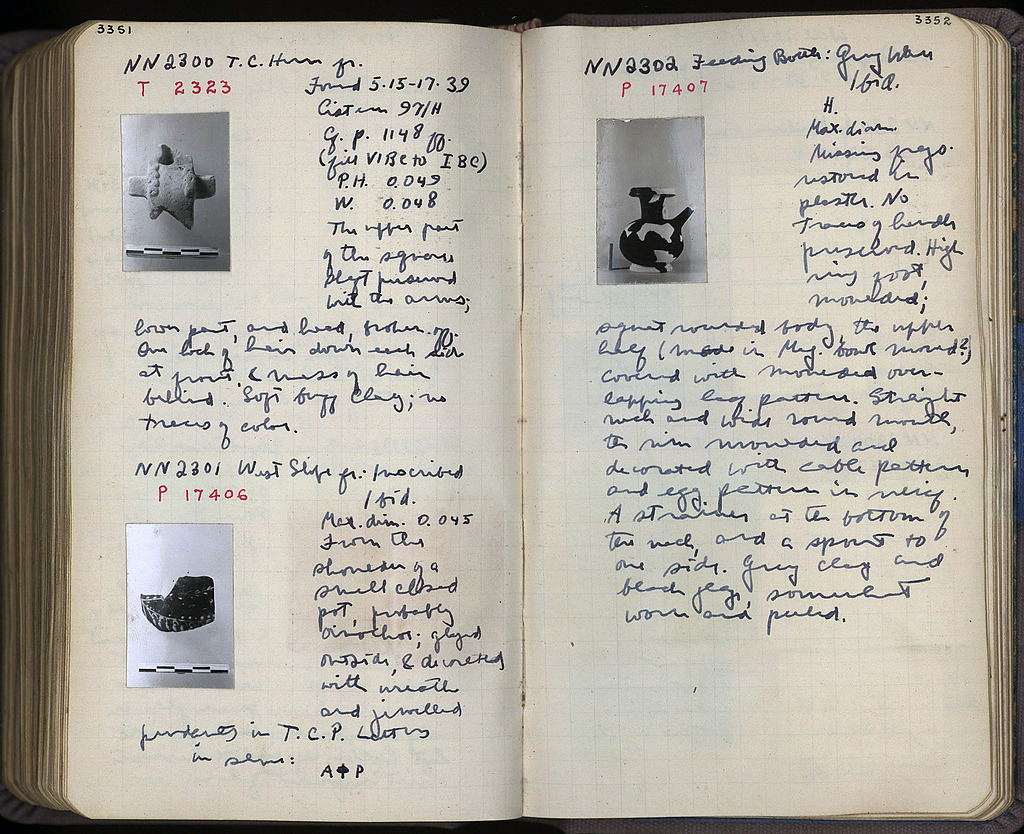 3351
NN2300 T.C. Herm fr.
T 2323
Found 5-15-17-39
Cistern 97/H
G. p. 1148 ff.
(fill VI BC to I BC)
P.H. 0.049
W. 0.048
The upper part
of the square
shaft preserved
with the arms;
lower part, and head, broken off.
One lock of hair down each side
at front, & mass of hair
behind. Soft buff clay; no
traces of color.
NN2301 West Slope fr.: Inscribed
P 17406
Ibid.
Max. dim. 0.045
From the
shoulder of a
small closed
pot, probably
oinochoe; glazed
outside, & decorated
with wreath
and jewelled
pendants in T.C.P. Letters
in
ΑΦΡ
3352
NN2302 Feeding Bottle: Grey Ware
P 17407
Ibid.
H.
Max. diam.
Missing frags.
restored in
plaster. No
traces of handle
preserved. High
ring foot,
moulded;
squat rounded body, the upper
half (made in Meg. bowl mould?)
covered with moulded over-
lapping leaf pattern. Straight
neck and wide round mouth,
the rim moulded and
decorated with cable pattern
and egg pattern in relief.
A strainer at the bottom of
the neck, and a spout to
one side. Grey clay and
black glaze, somewhat
worn and peeled.